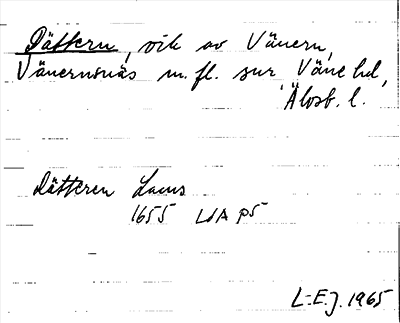 Dättern, vik av Vänern,
Vänersnäs m.fl. snr Väne hd,
Älvsb. l.
Dätteren Lacus
1655 LSA P5
L-E.J. 1965